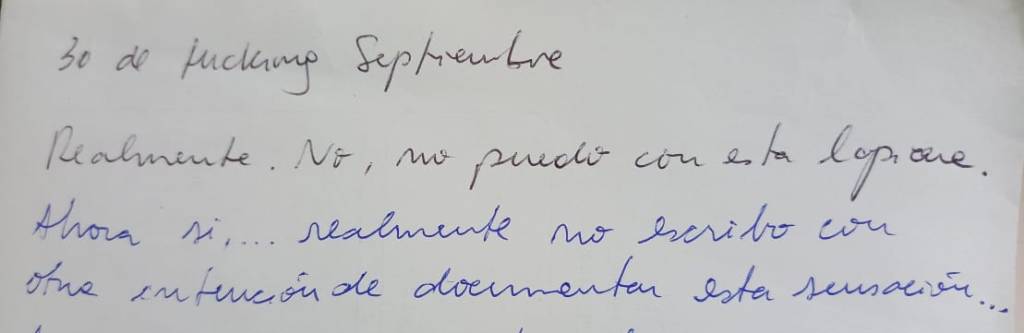 30 de fucking Septiembre
Realmente. No, no puedo con esta lapicera.
Ahora si,... realmente no escribo con
otra intención de documentar esta sensación...